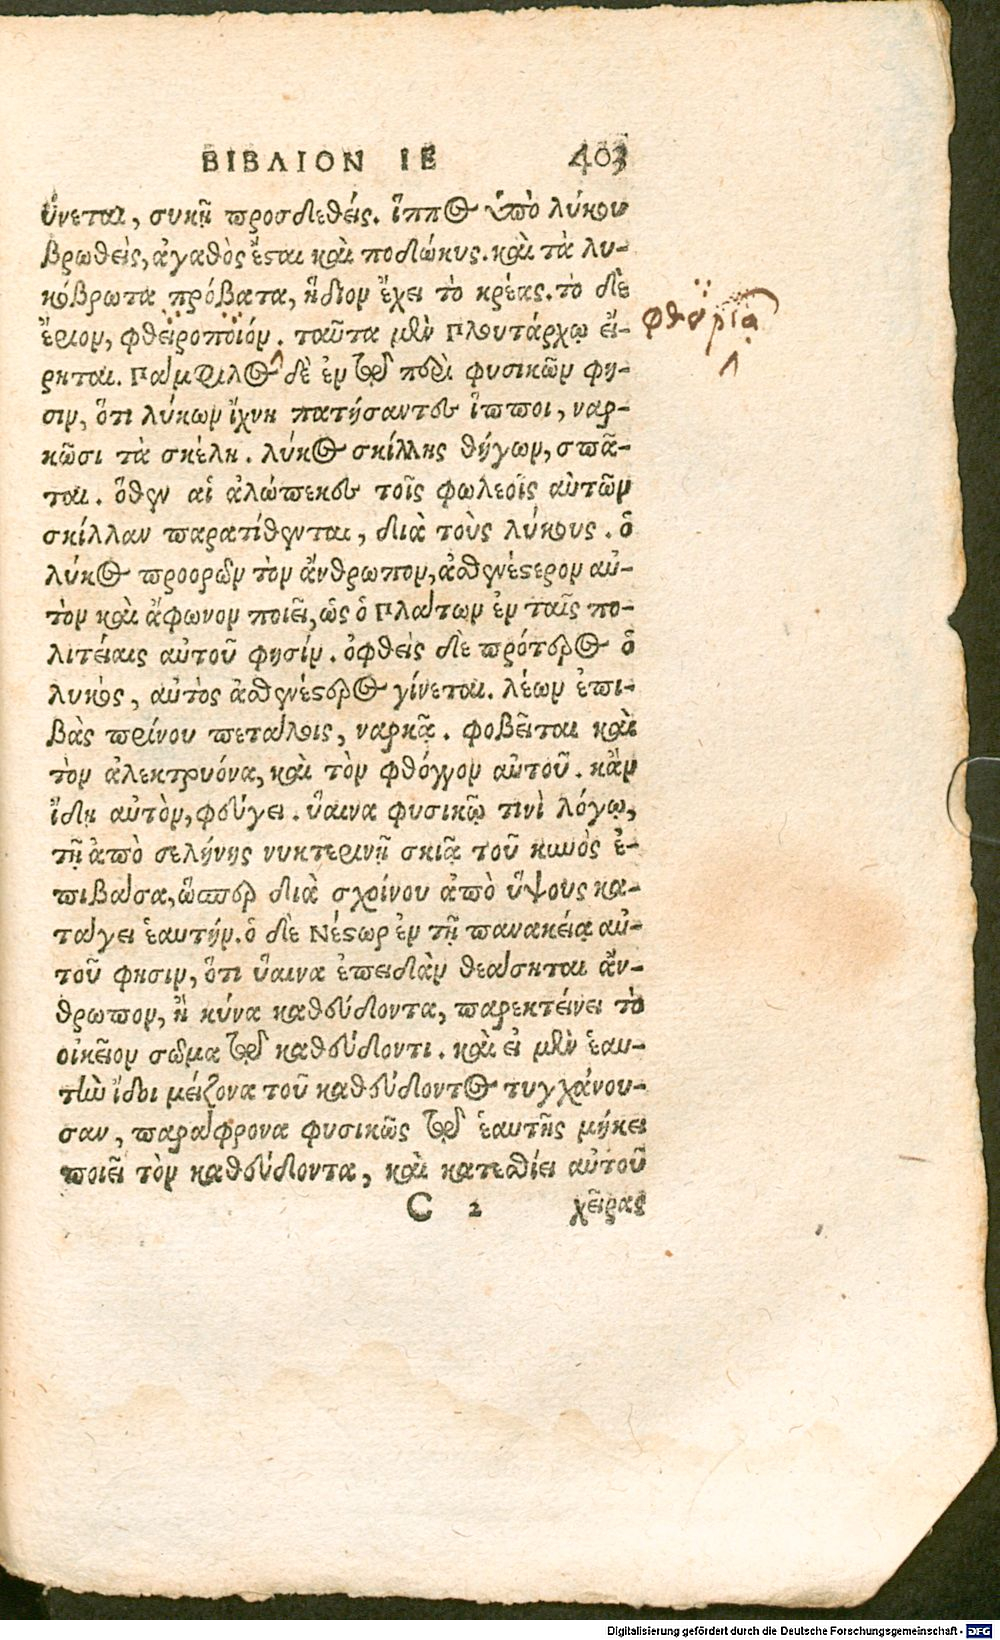 ΒΙΒΛΙΟΝ ΙΕ 403
ύνεται, συκῇ προσδεθείς. ἵππος ὑπὸ λύκου
βρωθεὶς, ἀγαθὸς ἔσται καὶ ποδώκυς. καὶ τὰ λυ-
κόβρωτα πρόβατα, ἥδιον ἔχει τὸ κρέας. τὸ δὲ
ἔριον, φθειροποιόν. ταῦτα μὲν Πλουτάρχῳ εἴ-
ρηται. Πάμφιλος δὲ ἐν τῷ περὶ φυσικῶν φη-
σιν, ὅτι λύκων ἴχνη πατήσαντες ἵπποι, ναρ-
κῶσι τὰ σκέλη. λύκος σκίλλης θήγων, σπᾶ-
ται. ὅθεν αἱ ἀλώπεκες τοῖς φωλεοῖς αὐτῶν
σκίλλαν παρατίθενται, διὰ τοὺς λύκους. ὁ
λύκος προορῶν τὸν ἄνθρωπον, ἀσθενέστερον αὐ-
τὸν καὶ ἄφωνον ποιεῖ, ὡς ὁ Πλάτων ἐν ταῖς πο-
λιτείαις αὐτοῦ φησίν. ὀφθεὶς δὲ πρότερος ὁ
λυκὸς, αὐτὸς ἀσθενέστερος γίνεται. λέων ἐπι-
βὰς πρίνου πετάλοις, ναρκᾷ. φοβεῖται καὶ
τὸν ἀλεκτρυόνα, καὶ τὸν φθόγγον αὐτοῦ. κἂν
ἴδῃ αὐτὸν, φεύγει. ὕαινα φυσικῷ τινὶ λόγῳ,
τῇ ἀπὸ σελήνης νυκτερινῇ σκιᾷ τοῦ κυνὸς ἐ-
πιβᾶσα, ὥσπερ διὰ σχοίνου ἀπὸ ὕψους κα-
τάγει ἑαυτήν. ὁ δὲ Νέστωρ ἐν τῇ πανακείᾳ αὐ-
τοῦ φησιν, ὅτι ὕαινα ἐπειδὰν θεάσηται ἄν-
θρωπον, ἢ κύνα καθεύδοντα, παρεκτείνει τὸ
οἰκεῖον σῶμα τῷ καθεύδοντι. καὶ εἰ μὲν ἑαυ-
τὴν ἴδοι μείζονα τοῦ καθεύδοντος τυγχάνου-
σαν, παράφρονα φυσικῶς τῷ ἑαυτῆς μήκει
ποιεῖ τὸν καθεύδοντα, καὶ κατεσθίει αὐτοῦ
C 2 χεῖρας
Digitalisierung gefördert durch die Deutsche Forschungsgemeinschaft - DFG